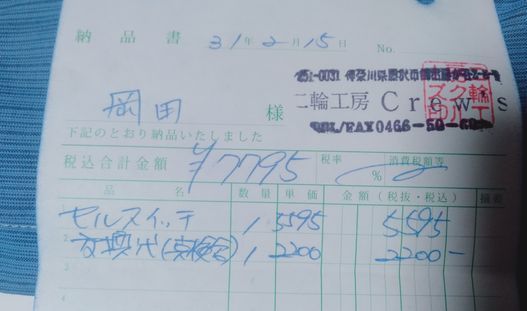 納品書 31年2月15日 No.
二輪工房 Crew's
岡田 様
下記のとおり納品いたしました
税込合計金額 ¥7795 税率 % 消費税額等
品名 数量 単価 金額(税抜・税込) 摘要
1 セルスイッチ 1 5595 5595
2 交換代(点検含) 1 2200 2200-
3
4